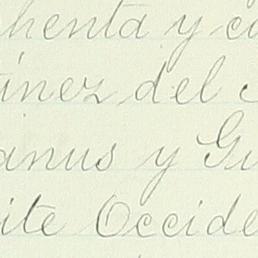 henta y c
ínez del
anus y Gu
ite Occide